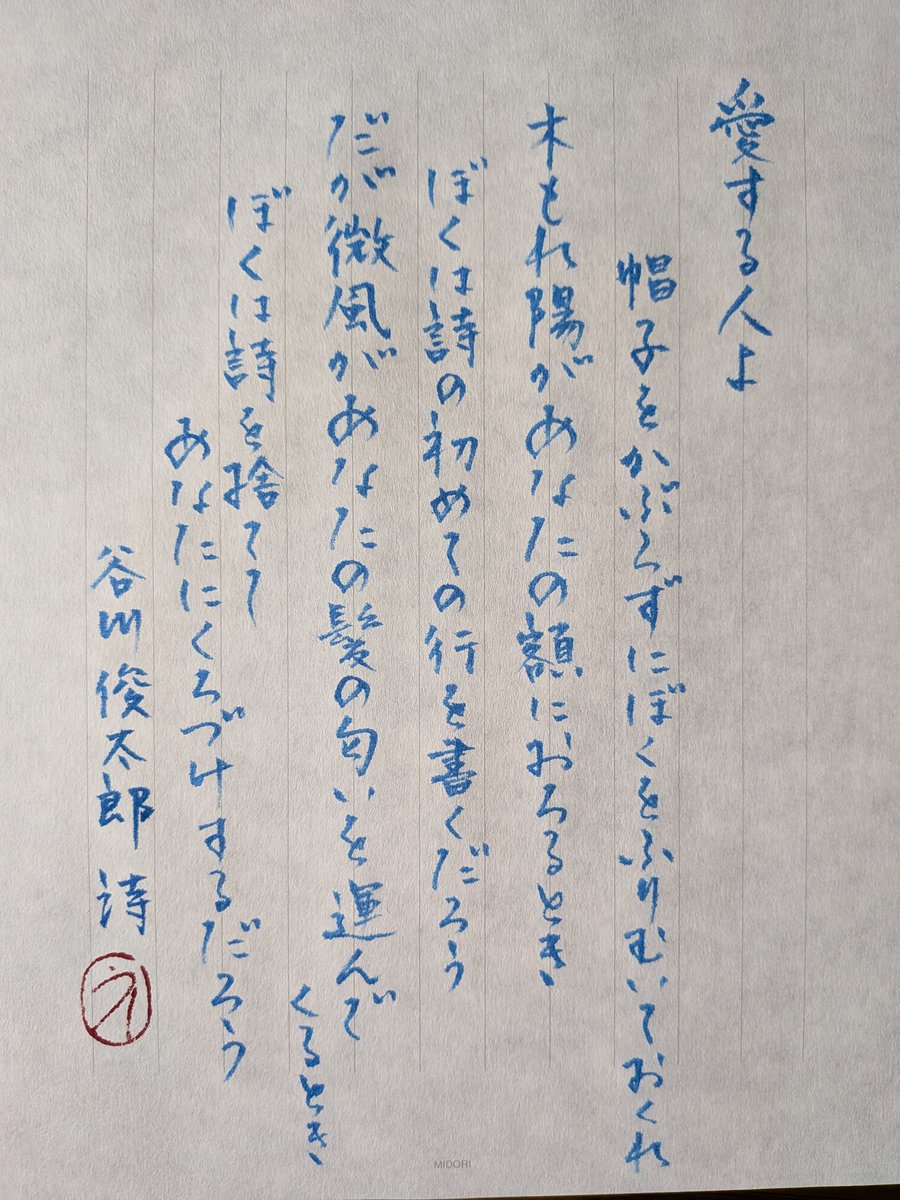 愛する人よ
帽子をかぶらずにぼくをふりむいておくれ
木もれ陽があなたの額におちるとき
ぼくは詩の初めての行を書くだろう
だが微風があなたの髪の匂いを運んで
くるとき
ぼくは詩を捨てて
あなたにくちづけするだろう
谷川俊太郎 詩
MIDORI